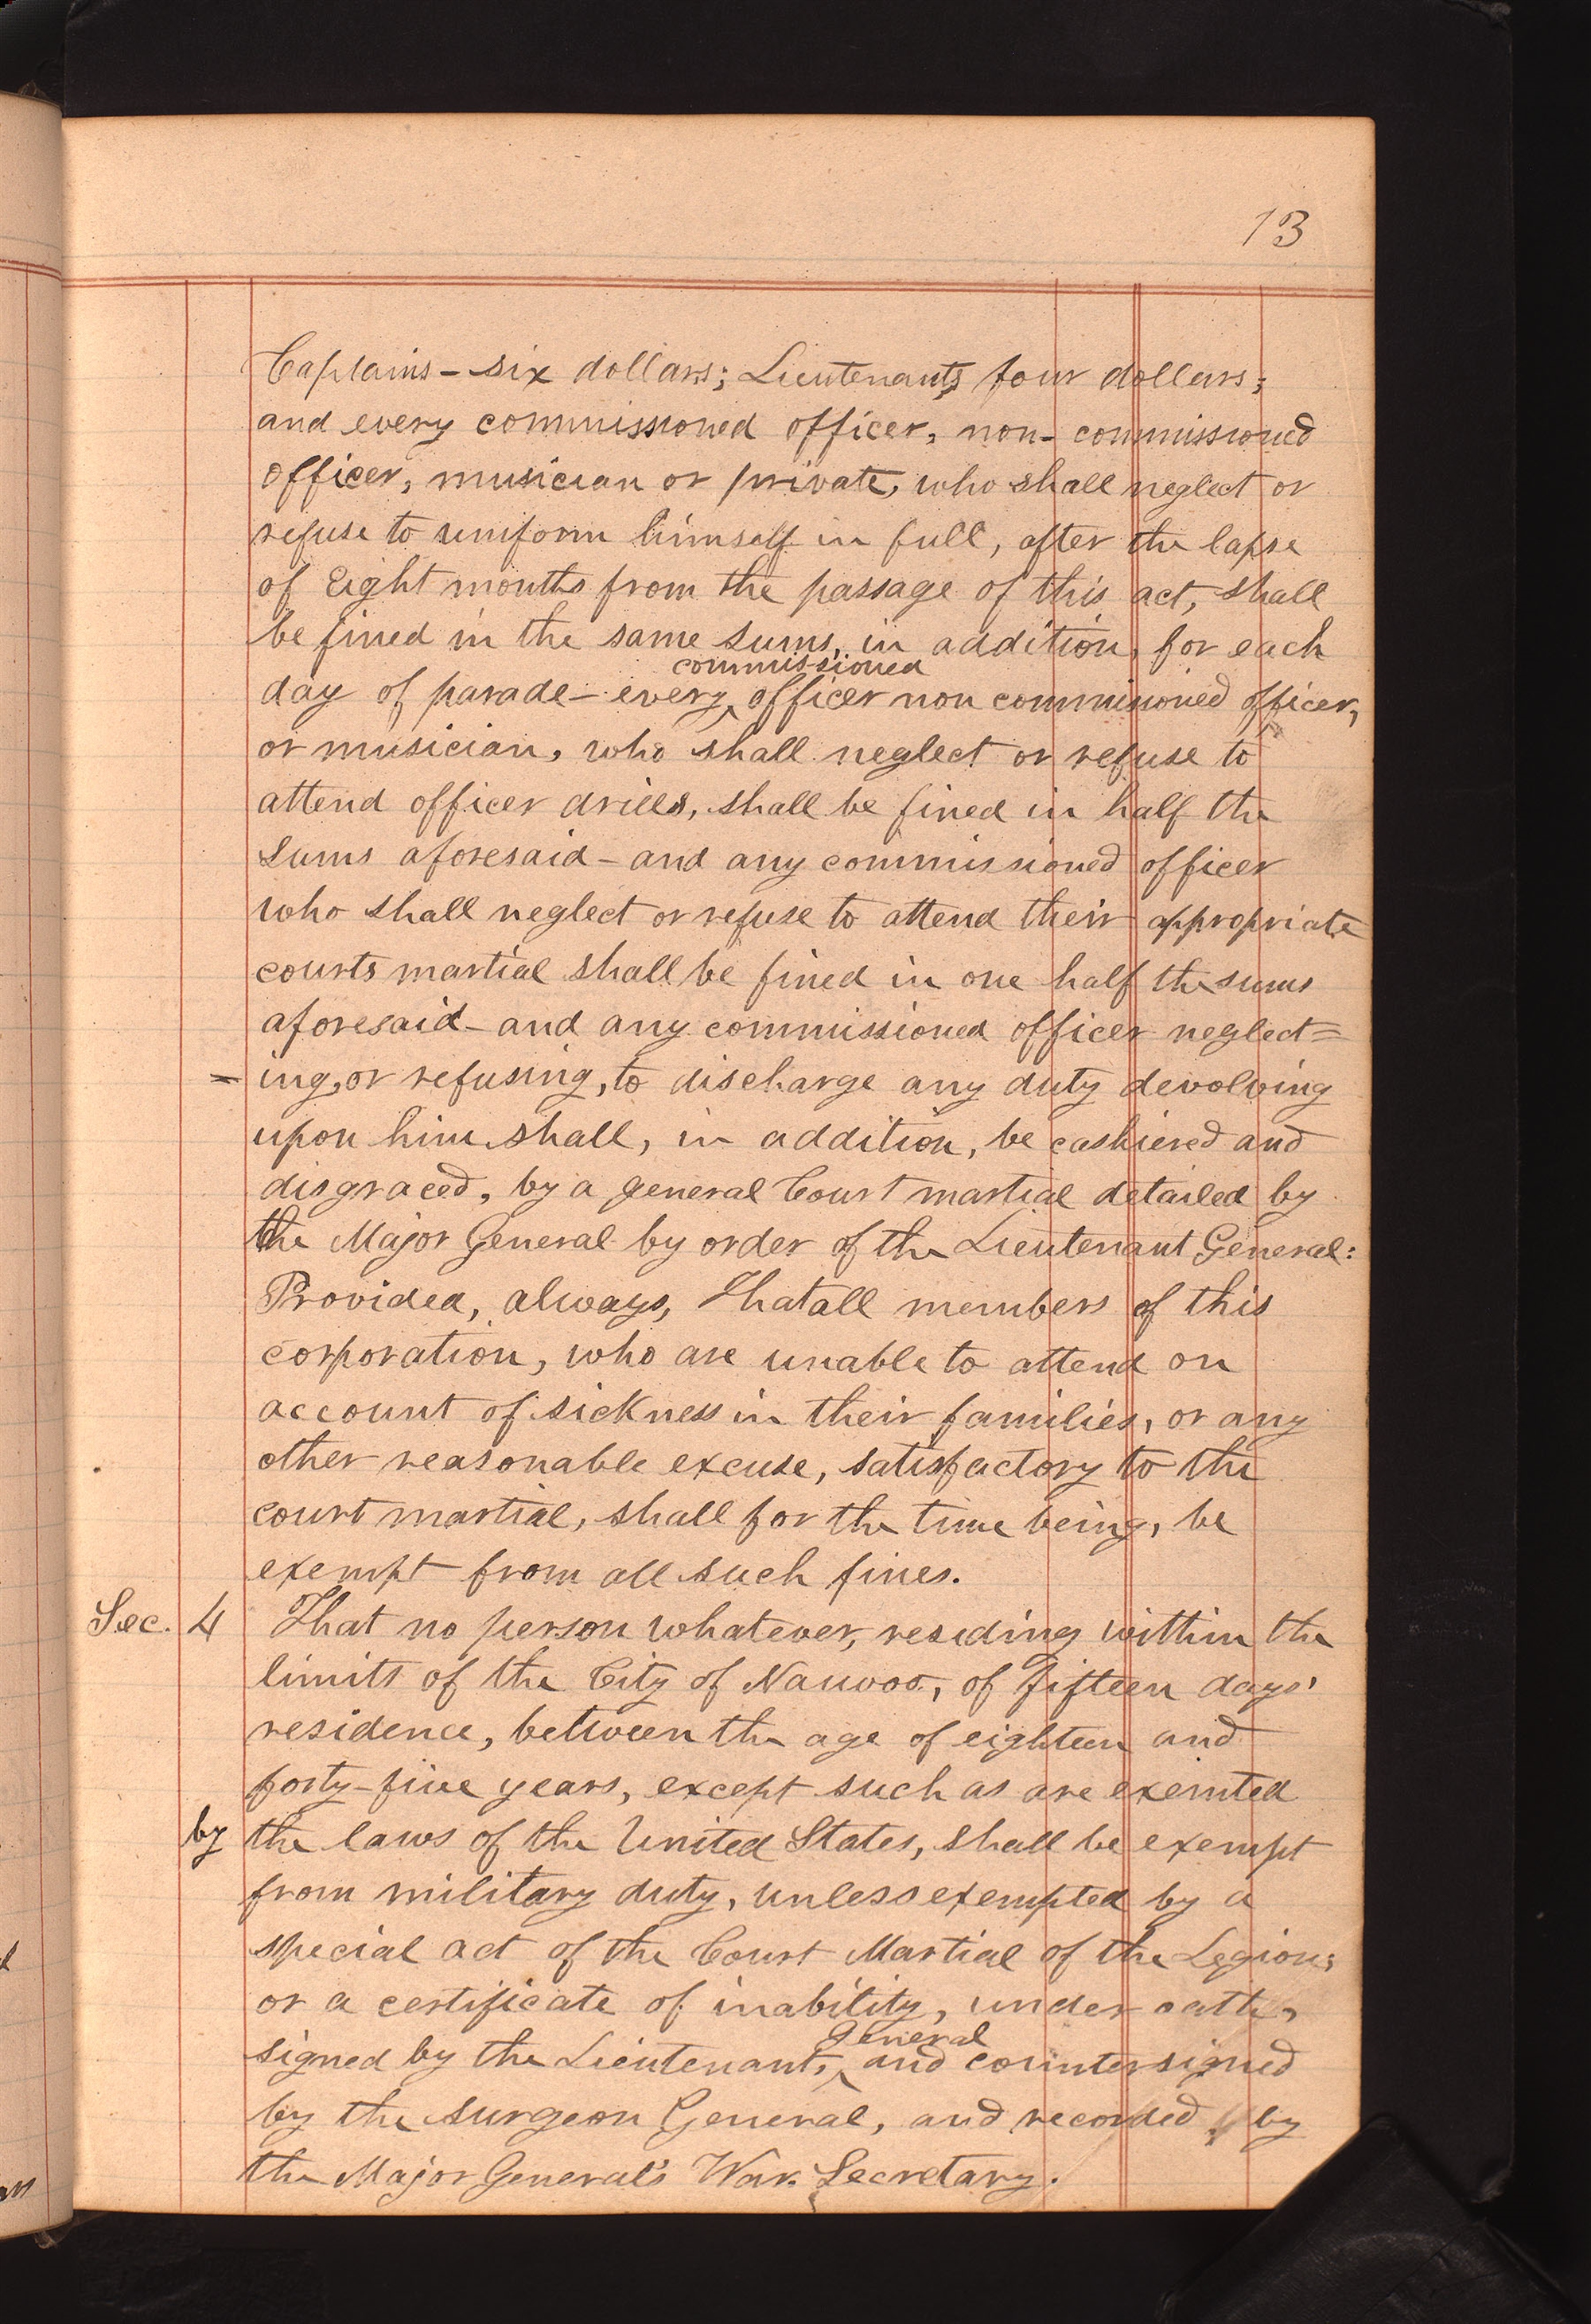 13
Captains – six dollars; Lieutenants four dollars;
and every commissioned officer, non- commissioned
officer, musician or private, who shall neglect or
refuse to uniform himself in full, after the lapse
of Eight months from the passage of this act, shall
be fined in the same sums, in addition, for each
commissioned
day of parade – every ‸ officer non commissioned officer,
or musician, who shall neglect or refuse to
attend officer drills, shall be fined in half the
sums aforesaid – and any commissioned officer
who shall neglect or refuse to attend their appropriate
courts martial shall be fined in one half the sums
aforesaid – and any commissioned officer neglect=
= ing, or refusing, to discharge any duty devolving
upon him shall, in addition, be cashiered and
disgraced, by a general Court martial detailed by
the Major General by order of the Lieutenant General:
Provided, always, That all members of this
corporation, who are unable to attend on
account of sickness in their families, or any
other reasonable excuse, satisfactory to the
court martial, shall for the time being, be
exempt from all such fines.
Sec. 4 That no person whatever, residing within the
limits of the City of Nauvoo, of fifteen days'
residence, between the age of eighteen and
forty-five years, except such as are exemted
by the laws of the United States, shall be exempt
from military duty, unless exempted by a
special act of the Court Martial of the Legion;
or a certificate of inability, under oath,
general
signed by the Lieutenant, ‸ and countersigned
by the surgeon General, and recorded, by
the Major General's War Secretary.